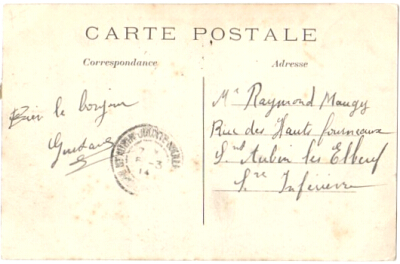 CARTE POSTALE
Correspondance
Adresse
Bien le bonjour
Gustave
Mr Raymond Maugy
Rue des Hauts fourneaux
St Aubin les Elbeuf
Sne Inférieure
14